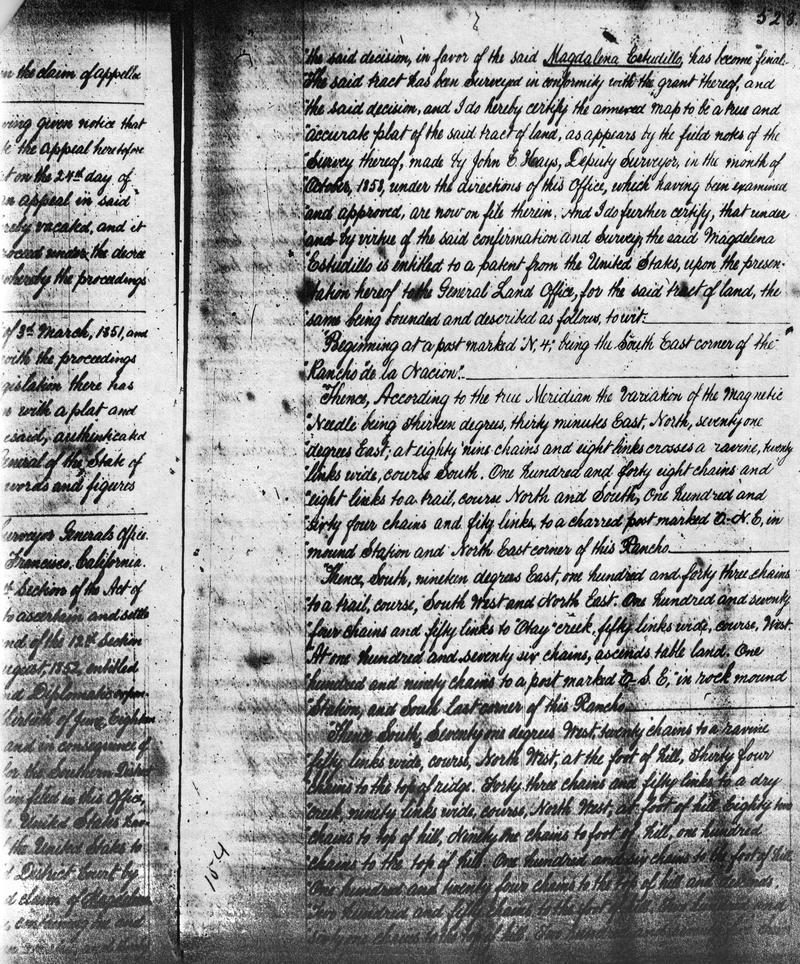 528
n the claim of appellee
ving given notice that
the Appeal heretofore
t on the 24th day of
n appeal in said
reby vacated, and it
roceed under the decree
whereby the proceedings
of 3d March, 1851, and
with the proceedings
gislation there has
n with a plat and
esaid, authenticated
General of the State of
words and figures
Surveyor Generals Office.
Francisco, California.
Section of the Act of
to ascertain and settle
nd of the 12th Section
ugust 1852 entitled
nd Diplomatic expen
thirtieth of June, Eighteen
and in consequence of
for the Southern District
een filed in this Office,
United States
the United States to
District Court by
d claim of Magdalena
confirming the said
the said decision, in favor of the said Magdalena Estudillo, has become final.
The said tract has been Surveyed in conformity with the grant thereof, and
the said decision, and I do hereby certify the annexed map to be a true and
accurate plat of the said tract of land, as appears by the field notes of the
Survey thereof, made by John C Hays, Deputy Surveyor, in the month of
October, 1858, under the directions of this Office, which having been examined
and approved, are now on file therein. And I do further certify, that under
and by virtue of the said confirmation and Survey, the said Magdalena
Estudillo is entitled to a patent from the United States, upon the presen-
tation hereof to the General Land Office, for the said tract of land, the
same being bounded and described as follows, to wit:
Beginning at a post marked "N. 4", being the South East corner of the
"Rancho de la Nacion".
Thence, According to the true Meridian the Variation of the Magnetic
Needle being thirteen degrees, thirty minutes East, North, seventy one
degrees East; at eighty nine chains and eight links crosses a ravine, twenty
links wide, course South. One hundred and forty eight chains and
eight links to a trail, course North and South, One hundred and
sixty four chains and fifty links, to a charred post marked O. N. E, in
mound Station and North East corner of this Rancho
Thence, South, nineteen degrees East, one hundred and forty three chains
to a trail, course, South West and North East. One hundred and seventy
four chains and fifty links to "Otay" creek, fifty links wide, course, West.
At one hundred and seventy six chains, ascends table land. One
hundred and ninety chains to a post marked O. S. E, in rock mound
Station, and South East corner of this Rancho
Thence South, Seventy one degrees West, twenty chains to a ravine
fifty links wide, course, North West, at the foot of hill, Thirty four
chains to the top of ridge. Forty three chains and fifty links to a dry
creek, ninety links wide, course, North West, at foot of hill Eighty two
chains to top of hill, Ninety one chains to foot of hill, one hundred
chains to the top of hill. One hundred and six chains to the foot of hill
One hundred and twenty four chains to the top of hill and
154